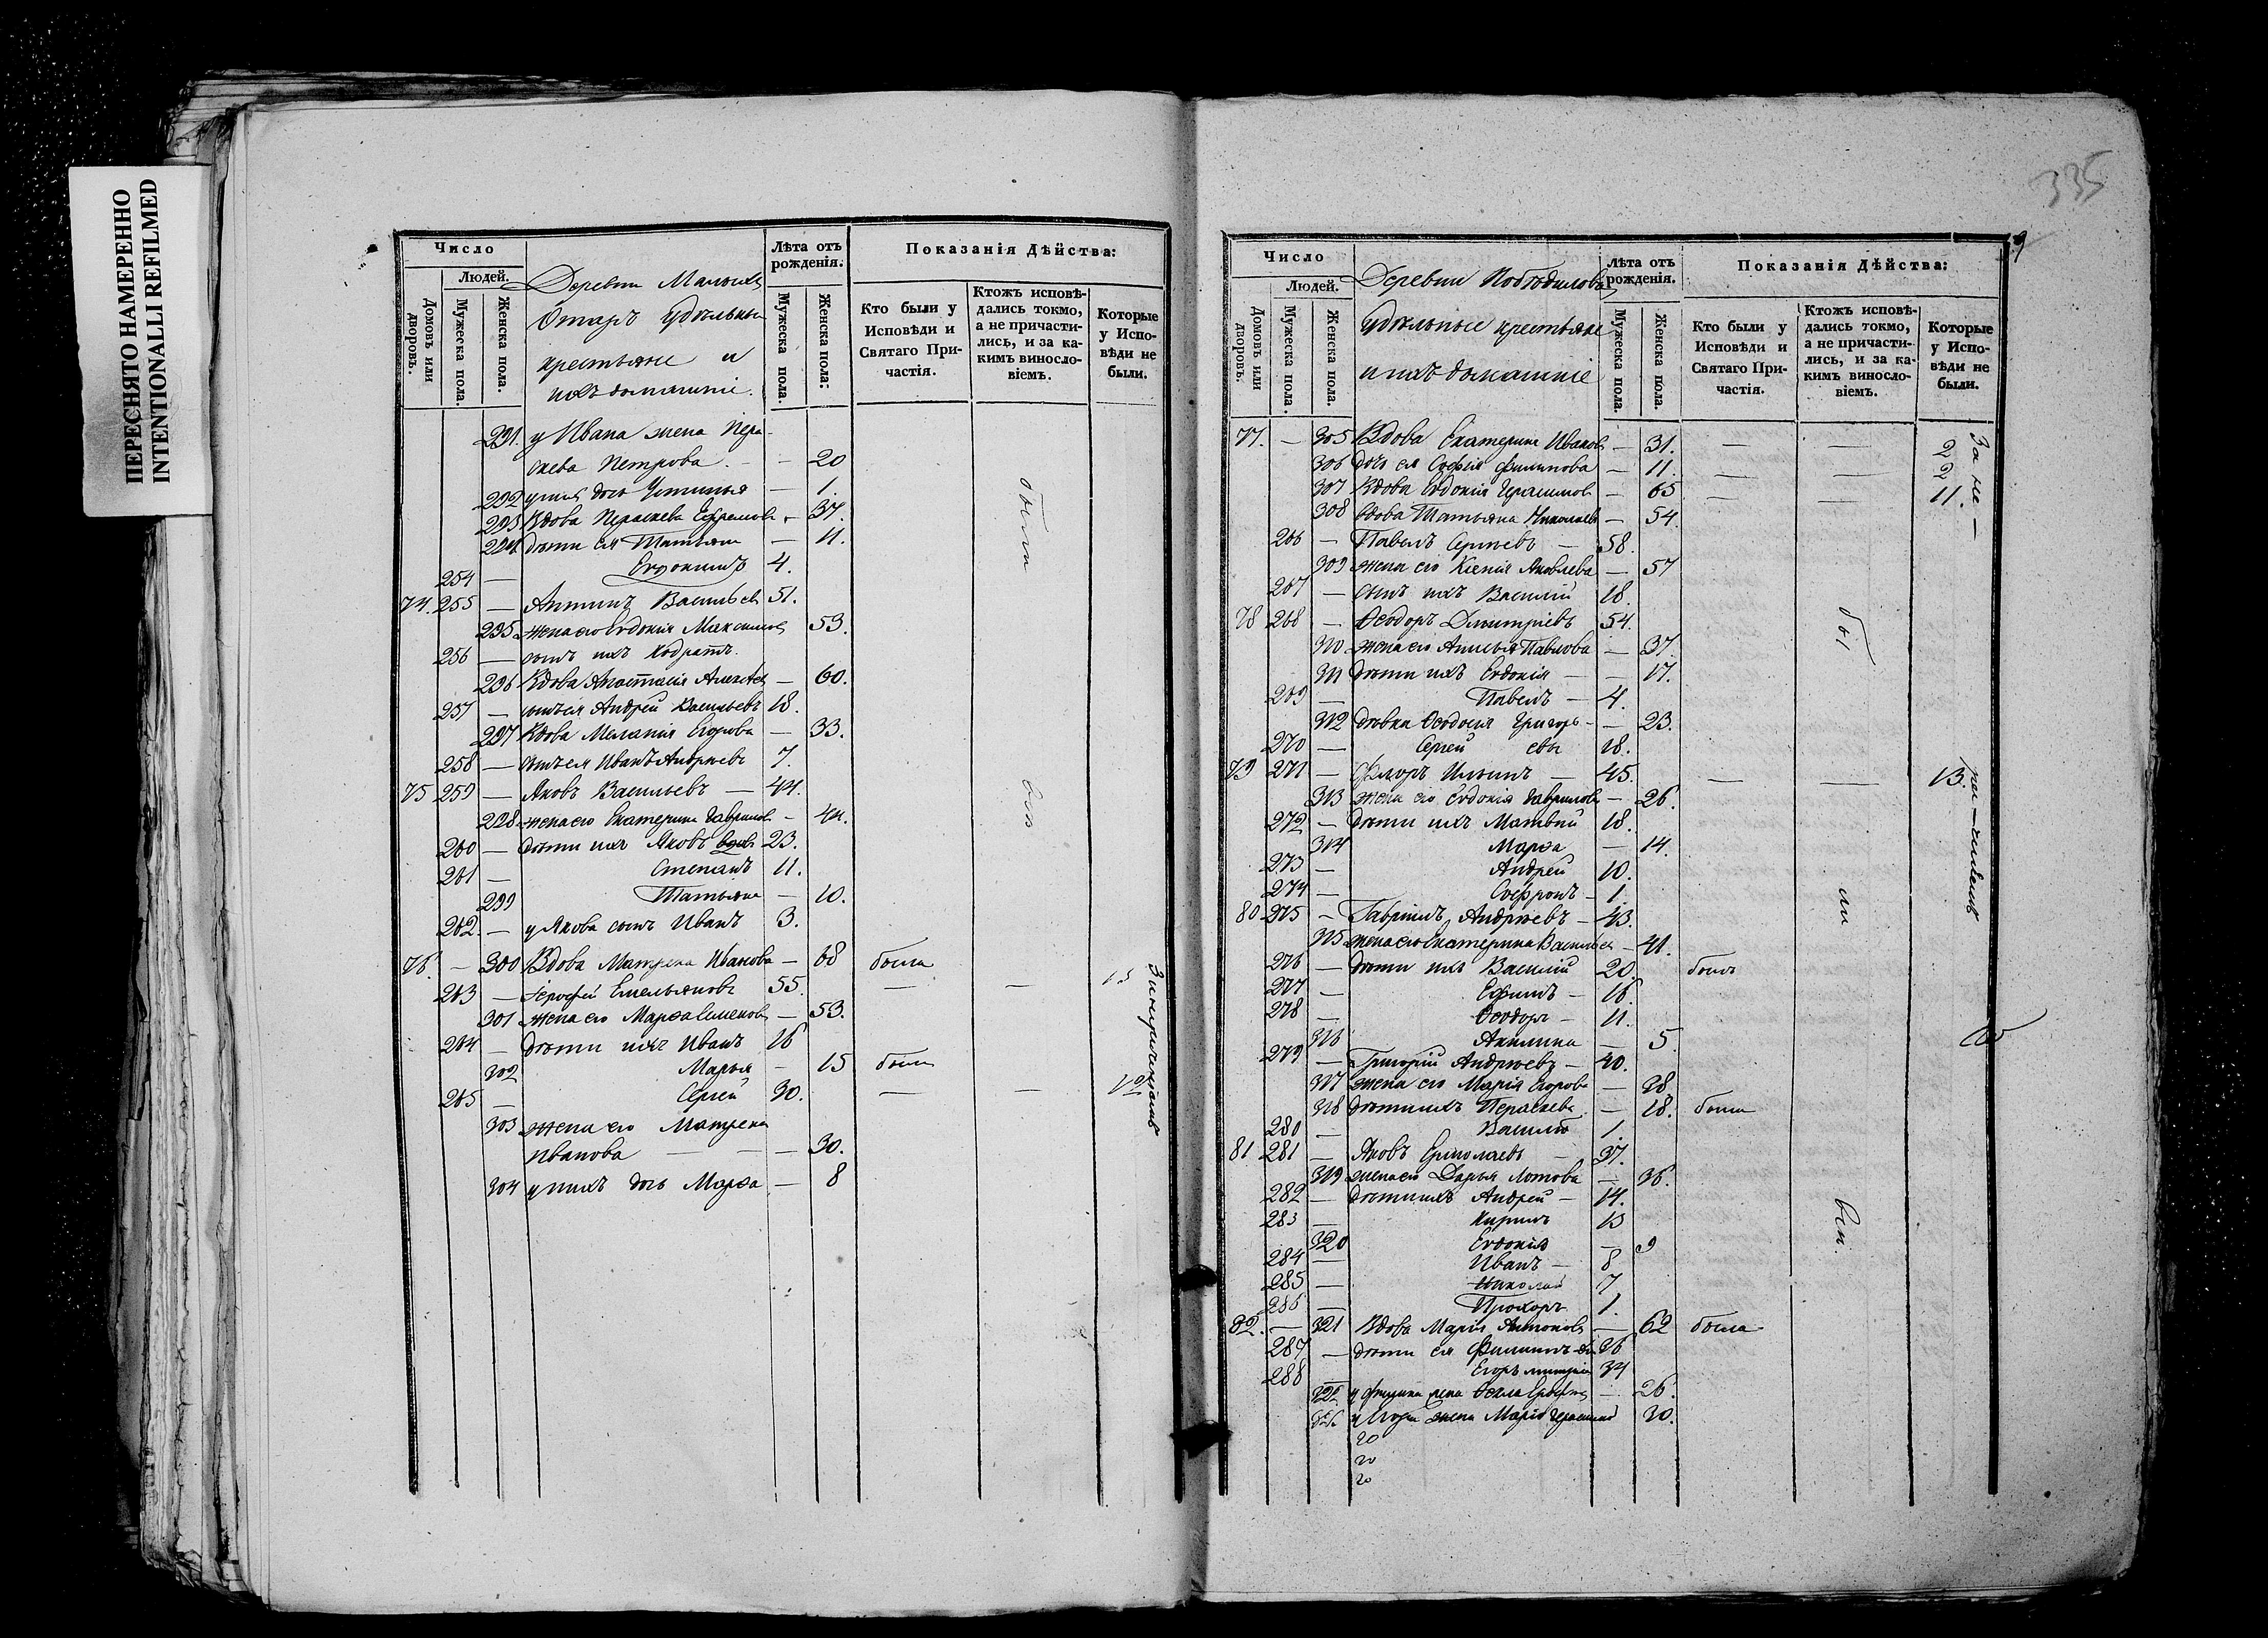 ПЕРЕСНЯТО НАМЕРЕННО
INTENTIONALLI REFILMED
335
Число
Людей.
Домовъ или дворовъ.
Мужеска пола.
Женска пола.
Деревни Малыхъ
Отаръ Удѣльные
крестьяне и
ихъ домашніе.
Лѣта отъ рожденія.
Мужеска пола.
Женска пола:
Показанія Дѣйства:
Кто были у Исповѣди и Святаго Причастія.
Ктожъ исповѣдались токмо, а не причастились, и за какимъ винословіемъ.
Которые у Исповѣди не были.
291. у Ивана жена Пера-
скева Петрова. — 20
292 у нихъ дочь Устинья — 1.
293 Вдова Пераскева Ефремова — 37.
294 дѣти ея Татьяна — 11.
254 — Евдокимъ 4.
74. 255 — Антипъ Васильевъ 51.
295 жена его Евдокія Максимова 53.
256 — сынъ ихъ Кодратъ.
296 Вдова Анастасія Алексѣева — 60.
257 — сынъ ея Андрей Васильевъ 18.
297 Вдова Меланія Егорова — 33.
258 — сынъ ея Иванъ Андреевъ 7.
75 259 — Яковъ Васильевъ — 44.
298 жена его Екатерина Гаврилова — 44.
260 — дѣти ихъ Яковъ вдовъ 23.
261 — Степанъ 11.
299 Татьяна — 10.
262. — у Якова сынъ Иванъ 3.
76. — 300 Вдова Матрена Иванова — 68 была
263 — Ерофей Емельяновъ 55. — —
301 жена его Марѳа Семенова — 53.
264 — дѣти ихъ Иванъ 16
302 Марья — 15 была
265 — Сергей 30. — —
303 жена его Матрена
Иванова — — — 30.
304 у нихъ дочь Марѳа — 8
были
Число
Людей.
Домовъ или дворовъ.
Мужеска пола.
Женска пола.
Деревни Побѣдилова
Удѣльные крестьяне
и ихъ домашніе
Лѣта отъ рожденія.
Мужеска пола.
Женска пола.
Показанія Дѣйства:
Кто были у Исповѣди и Святаго Причастія.
Ктожъ исповѣдались токмо, а не причастились, и за какимъ винословіемъ.
Которые у Исповѣди не были.
77. — 305 Вдова Екатерина Иванова — 31. — — 2
306 дочь ея Софія Филипова — 11. — — 2
307 Вдова Евдокія Герасимова — 65 — — 11.
308 Вдова Татьяна Николаева — 54.
266 — Павелъ Сергѣевъ — 58.
309 жена его Ксенія Яковлева — 57
267 — сынъ ихъ Василій 18.
78 268 — Ѳеодоръ Дмитріевъ 54.
310 жена его Анисья Павлова — 37.
311 дѣти ихъ Евдокія — — 17.
269 — Павелъ — 4.
312 дѣвка Ѳеодосія Григорь- — 23.
270 — Сергей евы 18.
79 271 — Флоръ Ильинъ — 45. — — 13.
313 жена его Евдокія Гаврилова — 26.
272 — дѣти ихъ Матвѣй 18.
314 Марѳа — 14.
273 — Андрей 10.
274 — Софронъ — 1.
80 275 — Гавріилъ Андреевъ — 43.
315 жена его Екатерина Васильева — 41.
276 — дѣти ихъ Василій 20. былъ
277 — Ефимъ — 16.
278 — Ѳеодоръ — 11.
316 Акилина — 5.
279 — Григорій Андреевъ — 40.
317 жена его Марія Егорова — 38
318 дѣти ихъ Пераскева — 18. была
280 — Василій 1.
81 281 — Яковъ Ермолаевъ — 37.
319 жена его Дарья Лотова — 36.
282 — дѣти ихъ Андрей — 14.
283 — Кирилъ 13
320 Евдокія — 9
284 — Иванъ — 8
285 — Николай 7
286 — Прохоръ 1.
82. — 321 Вдова Марія Антонова — 62 была
287 — дѣти ея Филиппъ 36
288 Егоръ 34
322 у Филипа жена Ѳекла — 26.
у Егора жена Марія 30.
20
20
20
бы
ли